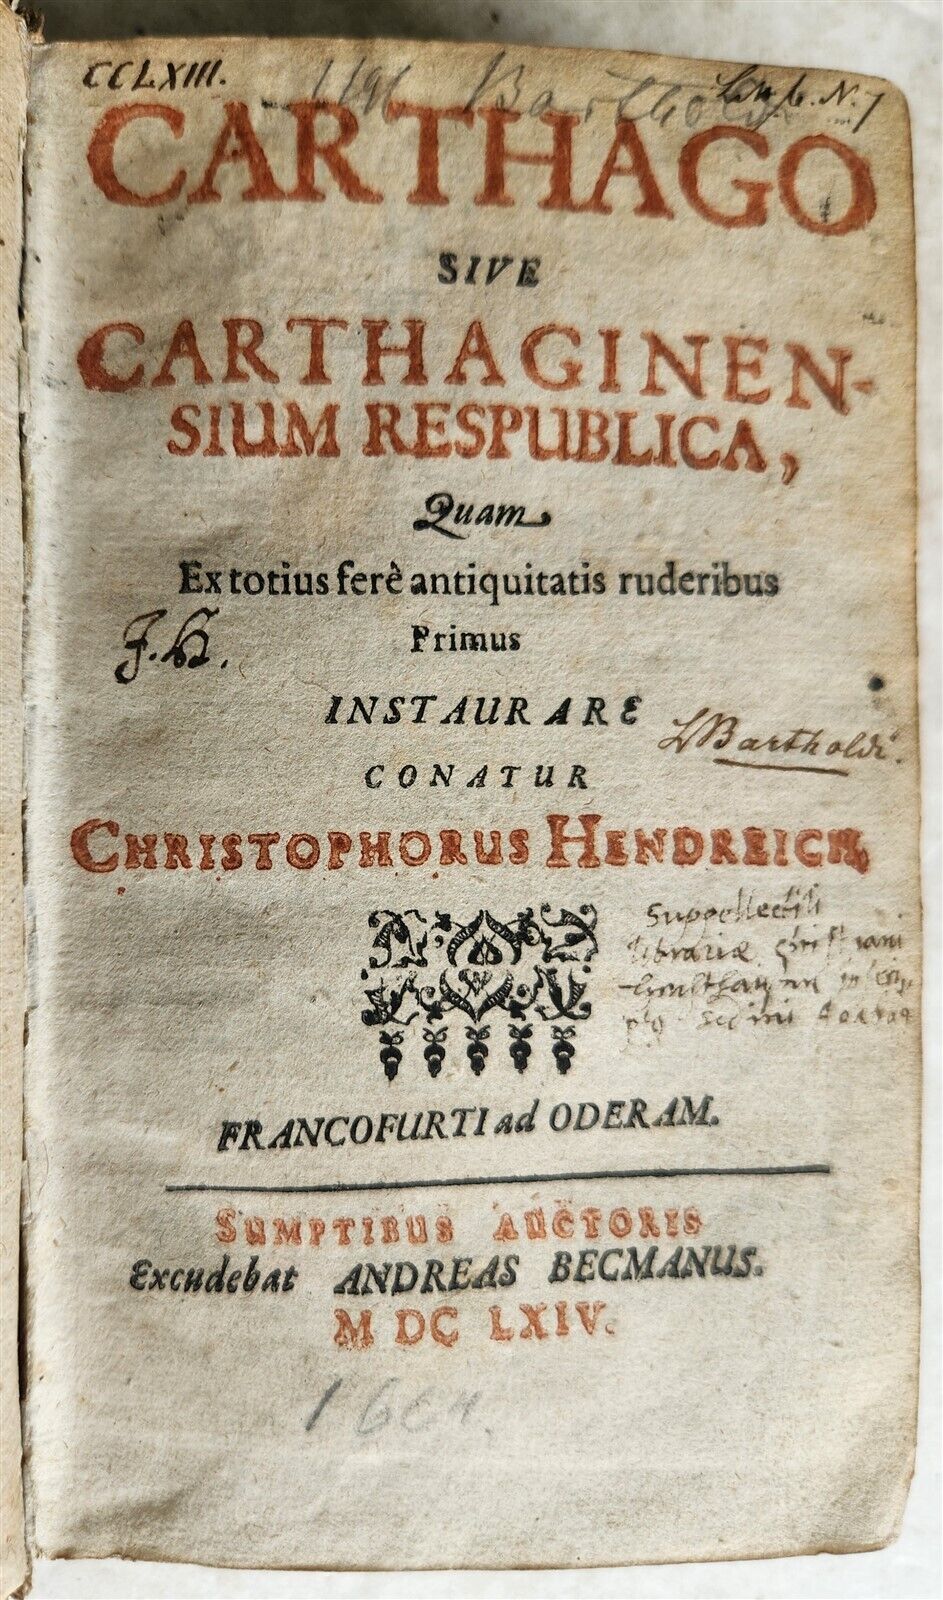 CCLXIII. Barthold N. 7
CARTHAGO
SIVE
CARTHAGINEN-
SIUM RESPUBLICA,
Quam
Ex totius ferè antiquitatis ruderibus
Primus
J.H.
INSTAURARE
LBartholdi.
CONATUR
CHRISTOPHORUS HENDREICH,
Suppellectili
librariæ
FRANCOFURTI ad ODERAM.
SUMPTIBUS AUCTORIS
Excudebat ANDREAS BECMANUS.
M DC LXIV.
1664.